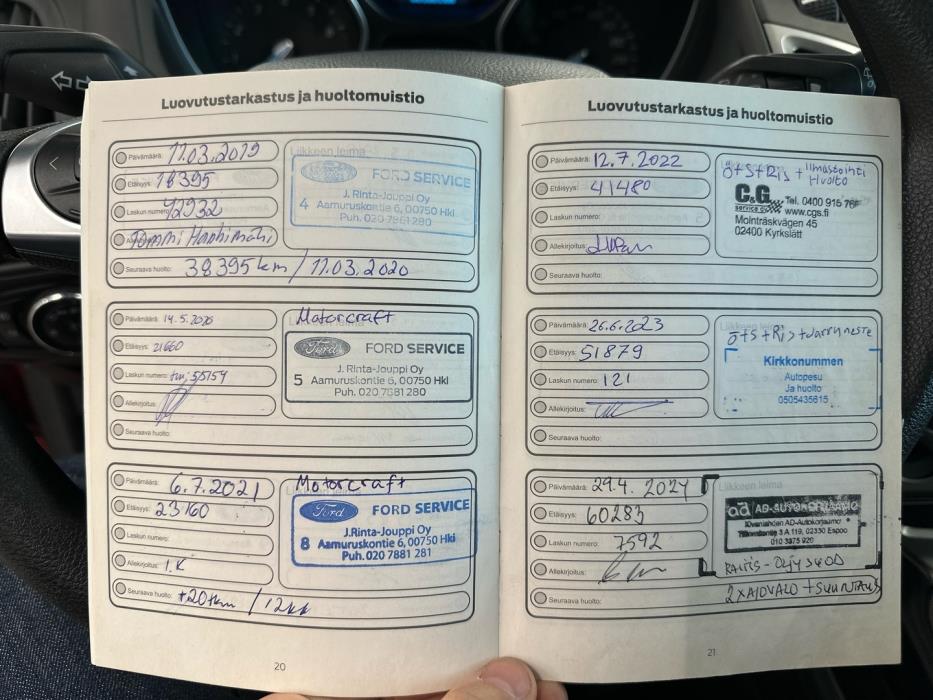 Luovutustarkastus ja huoltomuistio
Päivämäärä: 11.03.2019
Etäisyys: 18395
Laskun numero: 42932
Tommi Hanhimäki
Seuraava huolto: 38395 km / 11.03.2020
Liikkeen leima
Ford FORD SERVICE
4 J. Rinta-Jouppi Oy
Aamuruskontie 6, 00750 Hki
Puh. 020 7881 280
Päivämäärä: 14.5.2020
Etäisyys: 21660
Laskun numero:
Allekirjoitus:
Seuraava huolto:
Motorcraft
Ford FORD SERVICE
5 J. Rinta-Jouppi Oy
Aamuruskontie 6, 00750 Hki
Puh. 020 7881 280
Päivämäärä: 6.7.2021
Etäisyys: 23160
Laskun numero:
Allekirjoitus: I.K
Seuraava huolto: +20tkm / 12kk
Motorcraft
Ford FORD SERVICE
8 J.Rinta-Jouppi Oy
Aamuruskontie 6, 00750 Hki
Puh. 020 7881 281
20
Luovutustarkastus ja huoltomuistio
Päivämäärä: 12.7.2022
Etäisyys: 41480
Laskun numero:
Allekirjoitus:
Seuraava huolto:
Ö+S+Ris + Ilmastointi
Huolto
C&G
service oy
Tel. 0400 916
www.cgs.fi
Molnträskvägen 45
02400 Kyrkslätt
Päivämäärä: 26.6.2023
Etäisyys: 51879
Laskun numero: 121
Allekirjoitus:
Seuraava huolto:
Liikkeen leima
ö+s+Ris+Jarruneste
Kirkkonummen
Autopesu
Ja huolto
0505435615
Päivämäärä: 29.4. 2024
Etäisyys: 60283
Laskun numero: 7592
Allekirjoitus:
Seuraava huolto: 2XAJOVALO + SUUNTAUS
Liikkeen leima
ad AD-AUTOKORJAAMO
Kivenlahden AD-Autokorjaamo
3 A 119, 02330 Espoo
010 3975 920
21